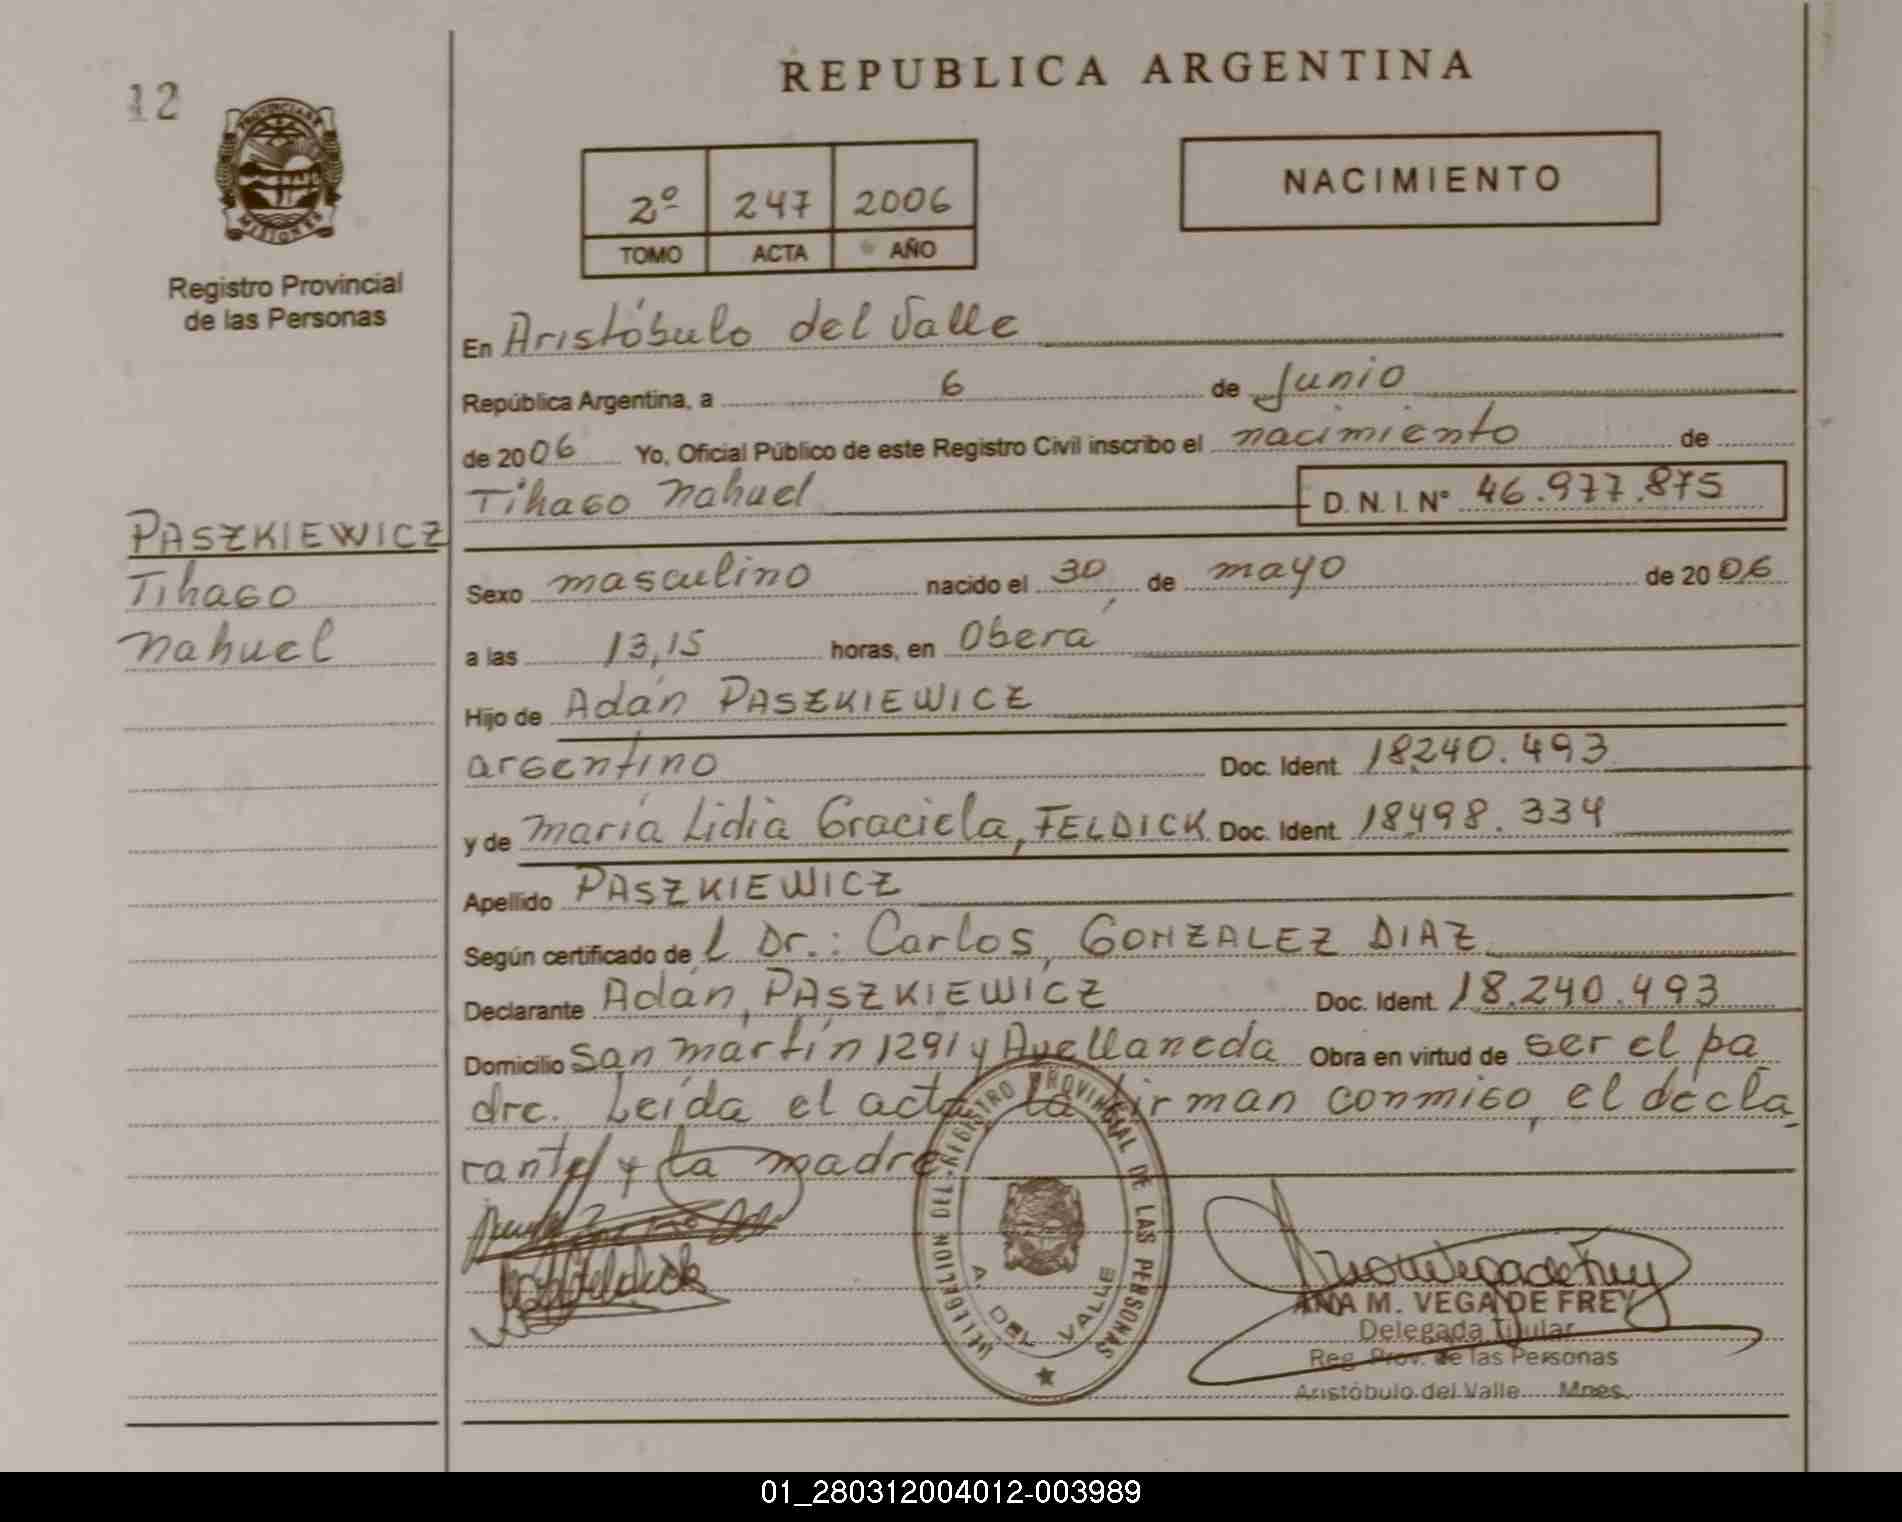 12
PROVINCIA DE
MISIONES
Registro Provincial
de las Personas
REPUBLICA ARGENTINA
2º 247 2006
TOMO ACTA AÑO
NACIMIENTO
En Aristóbulo del Valle
República Argentina, a 6 de Junio
de 2006 Yo, Oficial Público de este Registro Civil inscribo el nacimiento de
Tihago Nahuel D. N. I. Nº 46.977.875
PASZKIEWICZ
Tihago
Nahuel
Sexo masculino nacido el 30 de mayo de 2006
a las 13,15 horas, en Oberá
Hijo de Adán PASZKIEWICZ
argentino Doc. Ident. 18.240.493
y de María Lidia Graciela, FELDICK Doc. Ident. 18.498.334
Apellido PASZKIEWICZ
Según certificado de l Dr.: Carlos, GONZALEZ DIAZ
Declarante Adán, PASZKIEWICZ Doc. Ident. 18.240.493
Domicilio San Martín 1291 y Avellaneda Obra en virtud de ser el pa
dre. Leída el acta la firman conmigo, el decla
rante y la madre
DELEGACION DEL REGISTRO PROVINCIAL DE LAS PERSONAS
A. DEL VALLE
Feldick
ANA M. VEGA DE FREY
Delegada Titular
Reg. Prov. de las Personas
Aristóbulo del Valle Mnes.
01_280312004012-003989